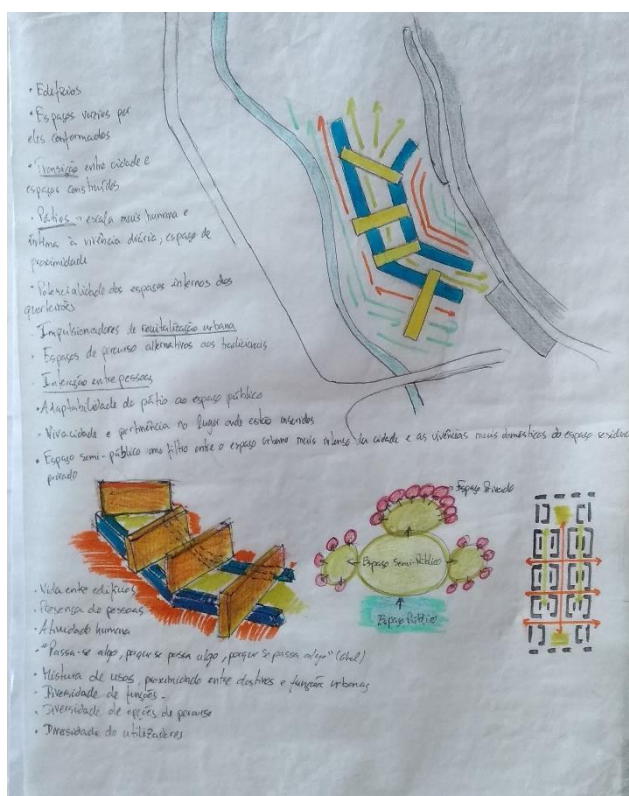 • Edifícios
• Espaços vazios por
eles conformados
• Transição entre cidade e
espaços construídos
• Pátios → escala mais humana e
íntima à vivência diária, espaço de
proximidade
• Potencialidade dos espaços internos dos
quarteirões
- Impulsionadores de revitalização urbana
- Espaços de percurso alternativos aos tradicionais
- Interação entre pessoas
• Adaptabilidade do pátio ao espaço público
- Vivacidade e pertinência no lugar onde estão inseridos
• Espaço semi-público como filtro entre o espaço urbano mais intenso da cidade e as vivências mais domésticas do espaço
privado
Espaço Privado
Espaço Semi-Público
Espaço Público
• Vida entre edifícios
• Presença de pessoas
• Atividade humana
• "Passa-se algo, porque se passa algo, porque se passa algo" (Gehl)
• Mistura de usos, proximidade entre destinos e função urbanas
- Diversidade de funções
- Diversidade de opções de percurso
• Diversidade de utilizadores